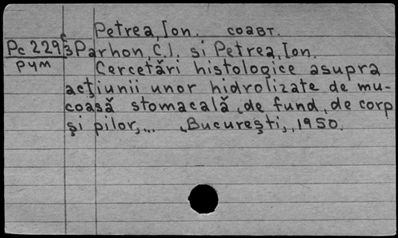 Petrea, Ion. соавт.
Рс 2293 Parhon, C.I. si Petrea, Ion.
рум Cercetări histologice asupra
acţiunii unor hidrolizate de mu-
coasă stomacală, de fund, de corp
şi pilor,... , Bucureşti, 1950.